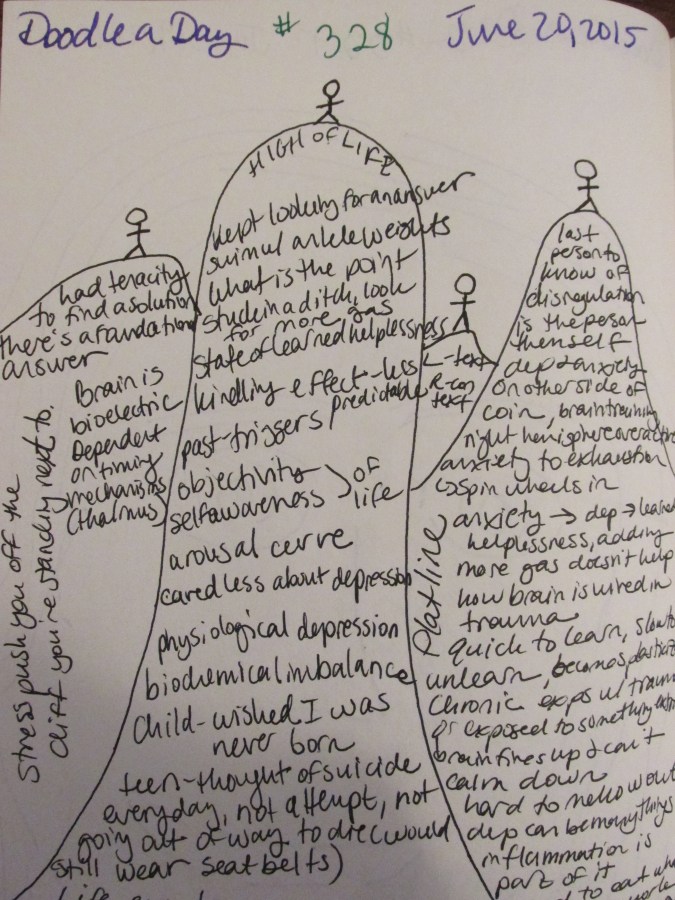 Doodle a Day # 328 June 20, 2015
HIGH OF LIFE
kept looking for an answer
swim w/ ankle weights
what is the point
stuck in a ditch, look
for more gas
state of learned helplessness
kindling effect - less
predictable
past-triggers
objectivity
selfawareness
of
life
arousal curve
cared less about depression
physiological depression
biochemical imbalance
child-wished I was
never born
teen-thought of suicide
everyday, not attempt, not
going out of way to die (would
still wear seatbelts)
had tenacity
to find a solution
there's a foundation
answer
Brain is
bioelectric
Dependent
on timing
mechanisms
(thalmus)
Stress push you off the
cliff you're standing next to.
L-text
R-con
text
last
person to
know of
disregulation
is the person
themself
dep & anxiety
on other side of
coin, brain training
right hemisphere overactive
anxiety to exhaustion
spin wheels in
anxiety → dep → learned
helplessness, adding
more gas doesn't help
how brain is wired in
trauma
Flatline
quick to learn, slow to
unlearn, becomes
chronic exps w/ trauma
or exposed to something
brain fires up & can't
calm down
hard to mellow out
dep can be many things
inflammation is
part of it
to eat